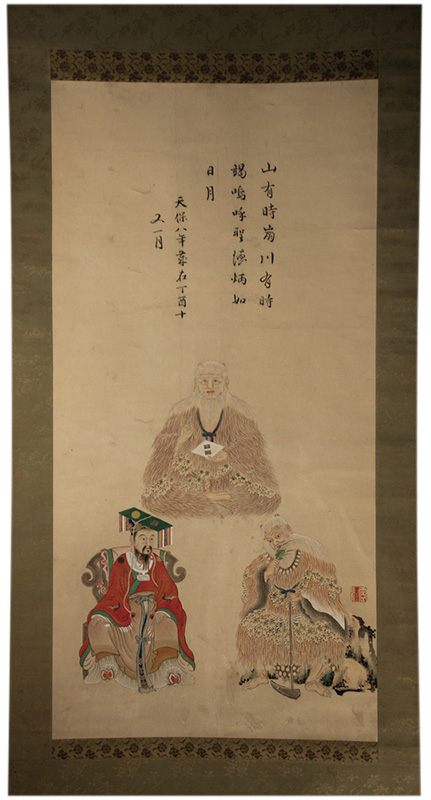 山有時崩川有時
竭嗚呼聖徳炳如
日月
天保八年歳在丁酉十
又一月